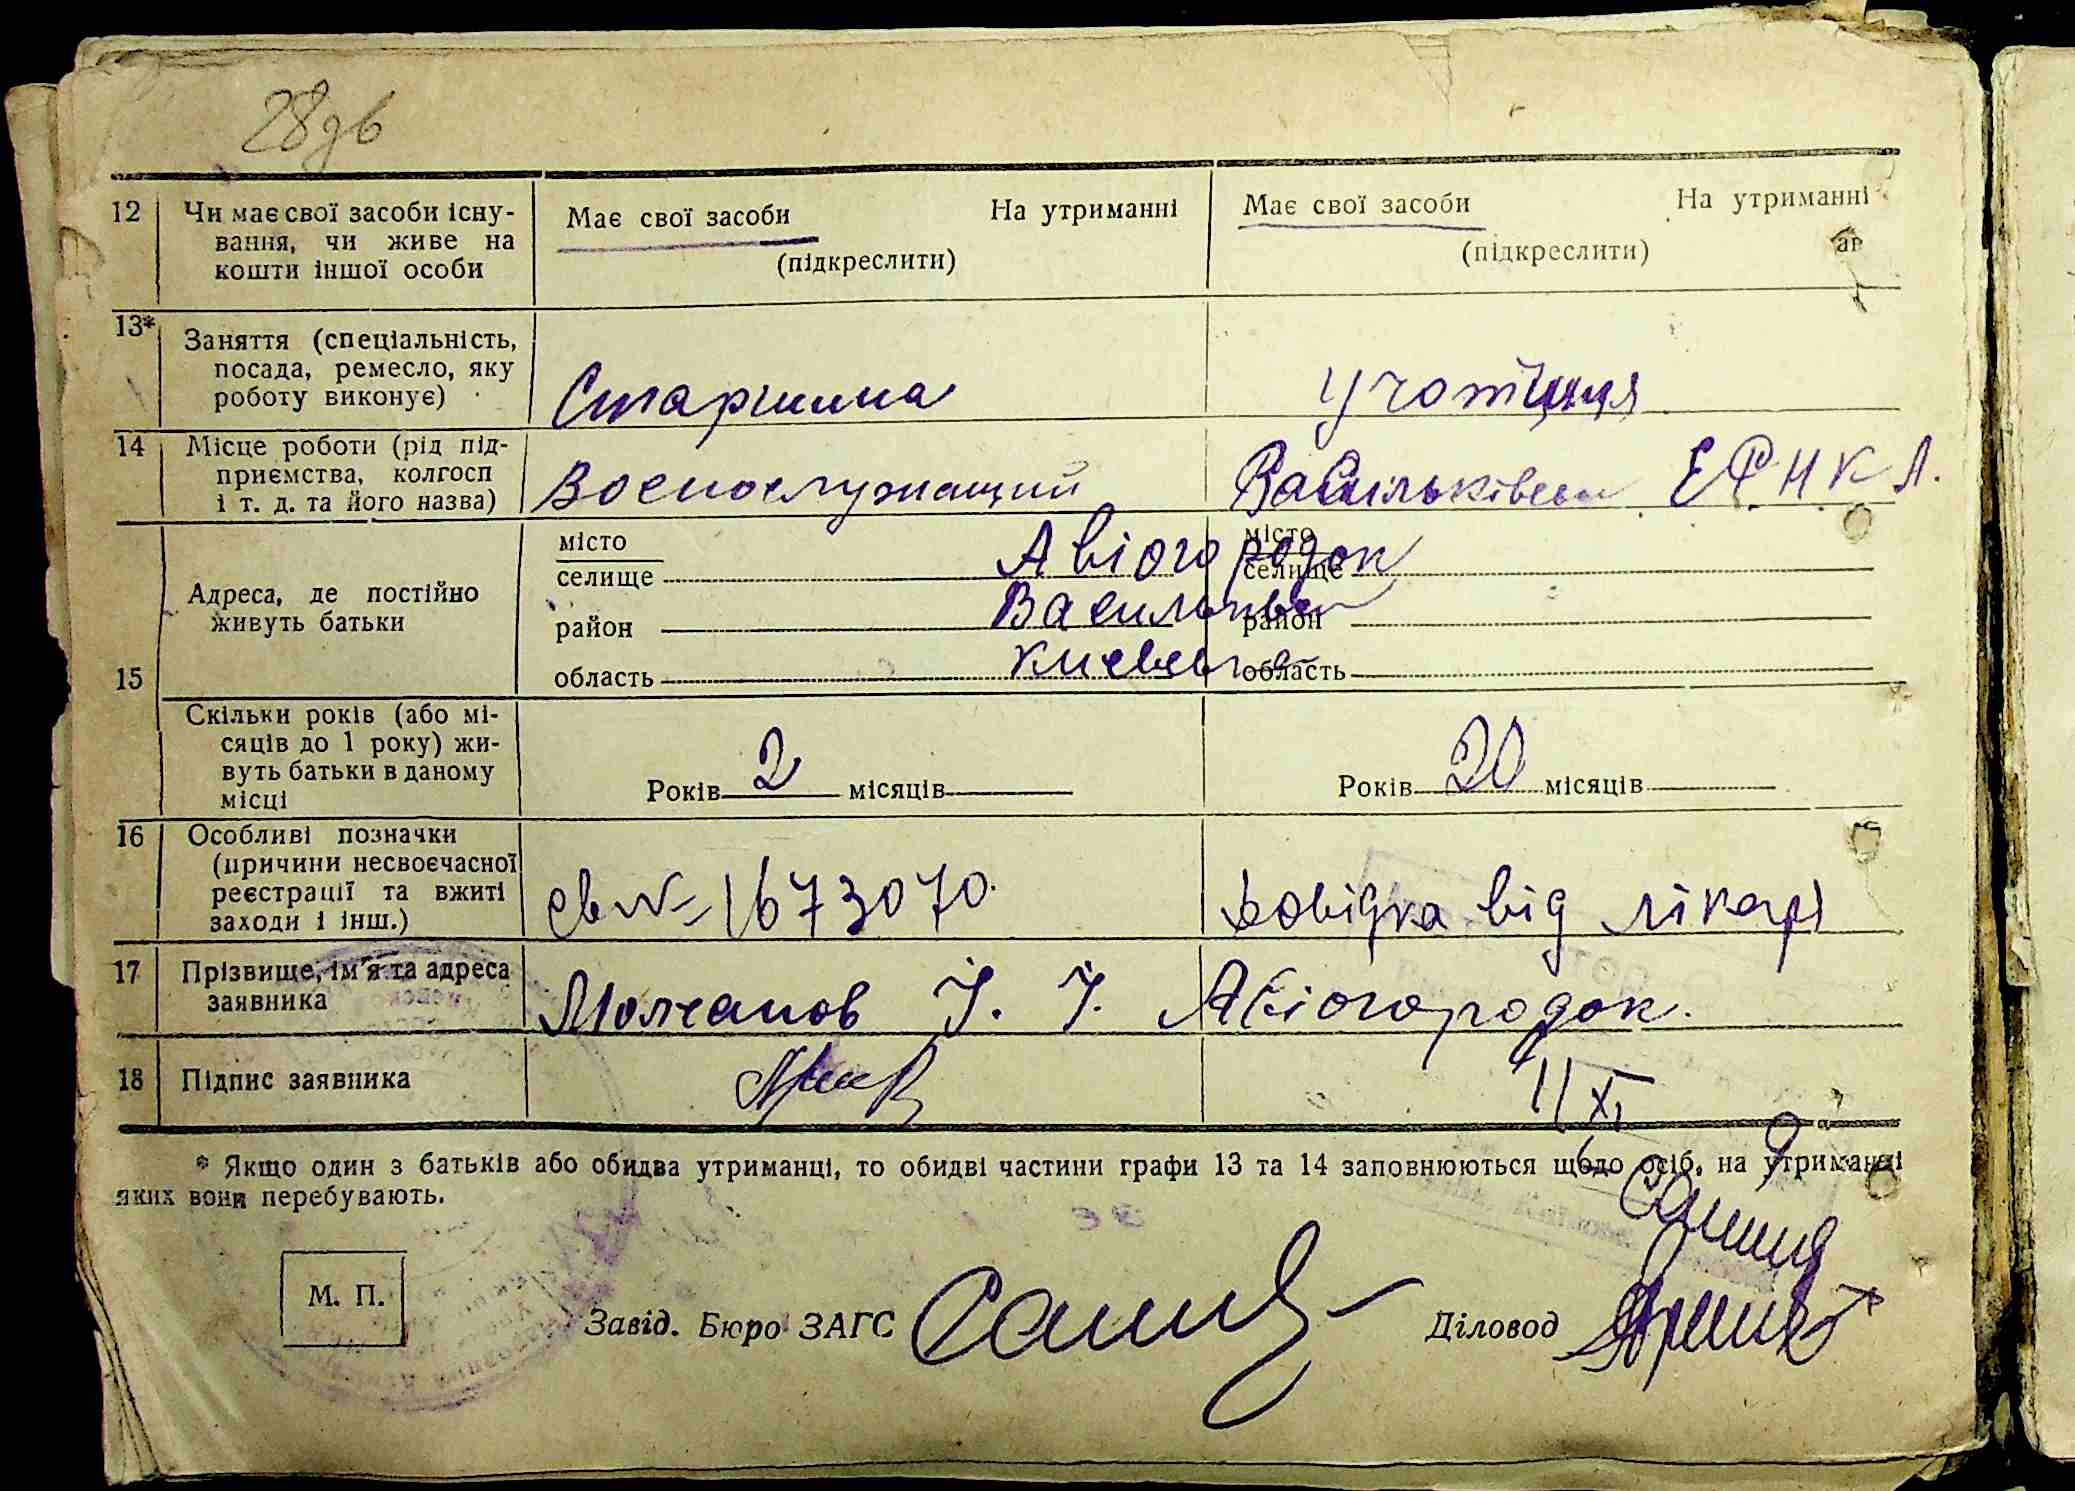 28
12 Чи має свої засоби існу- Має свої засоби На утриманні Має свої засоби На утриманні
вання, чи живе на (підкреслити) (підкреслити)
кошти іншої особи
13* Заняття (спеціальність,
посада, ремесло, яку
роботу виконує) Старшина
14 Місце роботи (рід під-
приємства, колгосп
і т. д. та його назва) Военослужащий
15 Адреса, де постійно
живуть батьки
місто місто
селище Авіогородок селище
район район
область область
Скільки років (або мі-
сяців до 1 року) жи-
вуть батьки в даному
місці
Років 2 місяців Років 20 місяців
16 Особливі позначки
(причини несвоєчасної
реєстрації та вжиті
заходи і інш.)
св № 1673070 Довідка від лікаря
17 Прізвище, ім'я та адреса
заявника
Молчанов І. І. Авіогородок.
18 Підпис заявника
11/XI
* Якщо один з батьків або обидва утриманці, то обидві частини графи 13 та 14 заповнюються щодо осіб, на утриманні
яких вони перебувають.
М. П.
Завід. Бюро ЗАГС Діловод